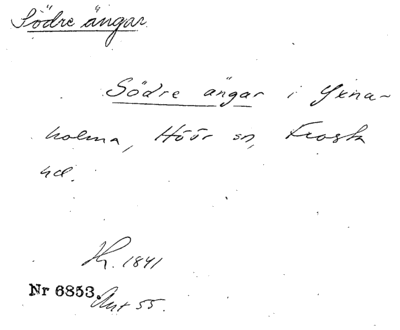 Södre ängar.
Södre ängar i Yxna-
holma, Höör sn, Frosta
hd.
1841
Nr 6853. Akt 55.